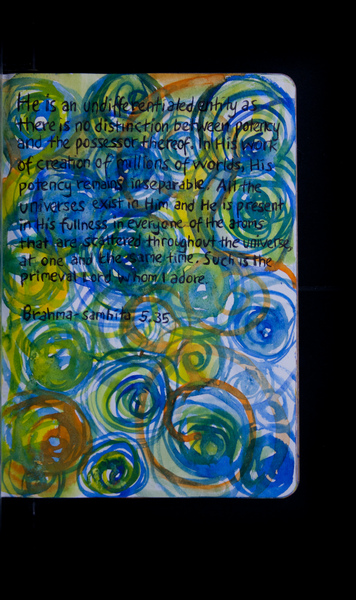 He is an undifferentiated entity as
there is no distinction between potency
and the possessor thereof. In His work
of creation of millions of worlds, His
potency remains inseparable. All the
universes exist in Him and He is present
in His fullness in everyone of the atoms
that are scattered throughout the universe,
at one and the same time. Such is the
primeval Lord whom I adore.
Brahma-samhita 5.35